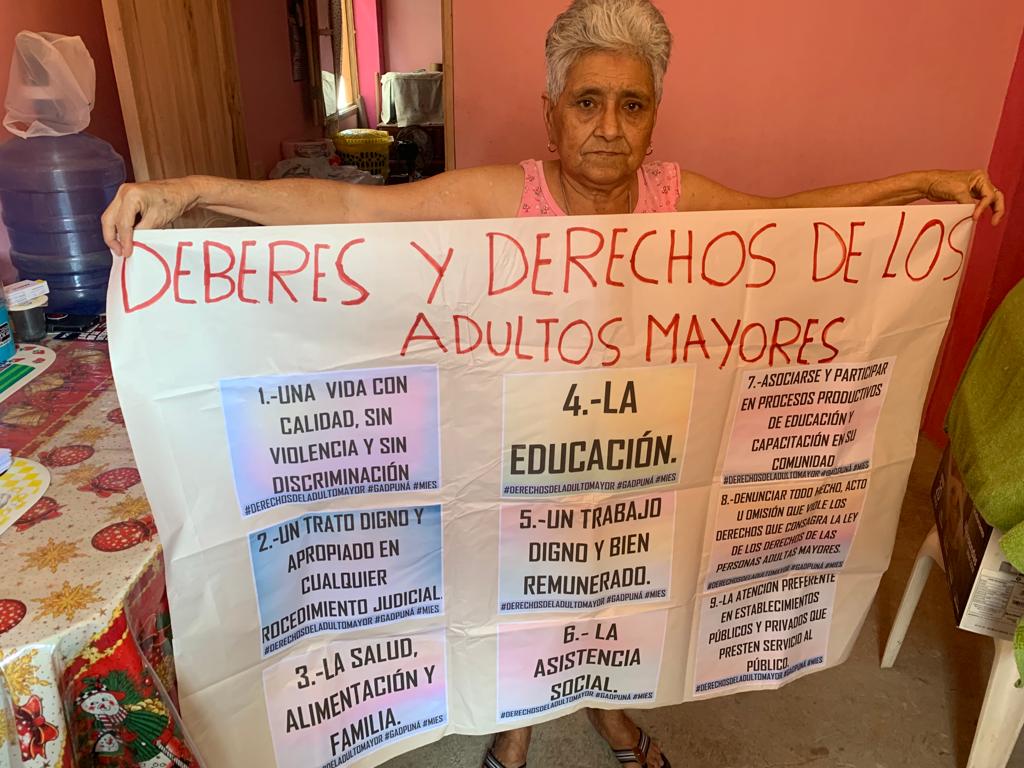 DEBERES Y DERECHOS DE LOS
ADULTOS MAYORES
1.-UNA VIDA CON
CALIDAD, SIN
VIOLENCIA Y SIN
DISCRIMINACIÓN
#DERECHOSDELADULTOMAYOR #GADPUNÁ #MIES
2.-UN TRATO DIGNO Y
APROPIADO EN
CUALQUIER
ROCEDIMIENTO JUDICIAL.
#DERECHOSDELADULTOMAYOR #GADPUNÁ #MIES
3.-LA SALUD,
ALIMENTACIÓN Y
FAMILIA.
#DERECHOSDELADULTOMAYOR #GADPUNÁ #MIES
4.-LA
EDUCACIÓN.
#DERECHOSDELADULTOMAYOR #GADPUNÁ #MIES
5.-UN TRABAJO
DIGNO Y BIEN
REMUNERADO.
#DERECHOSDELADULTOMAYOR #GADPUNÁ #MIES
6.- LA
ASISTENCIA
SOCIAL.
#DERECHOSDELADULTOMAYOR #GADPUNÁ #MIES
7.-ASOCIARSE Y PARTICIPAR
EN PROCESOS PRODUCTIVOS
DE EDUCACIÓN Y
CAPACITACIÓN EN SU
COMUNIDAD
#DERECHOSDELADULTOMAYOR #GADPUNÁ #MIES
8.-DENUNCIAR TODO HECHO, ACTO
U OMISIÓN QUE VIOLE LOS
DERECHOS QUE CONSAGRA LA LEY
DE LOS DERECHOS DE LAS
PERSONAS ADULTAS MAYORES.
#DERECHOSDELADULTOMAYOR #GADPUNÁ #MIES
9.-LA ATENCIÓN PREFERENTE
EN ESTABLECIMIENTOS
PÚBLICOS Y PRIVADOS QUE
PRESTEN SERVICIO AL
PÚBLICO.
#DERECHOSDELADULTOMAYOR #GADPUNÁ #MIES